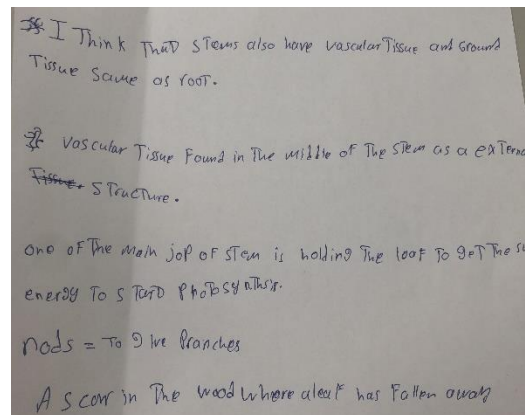 I Think ThaT STems also have vascular Tissue and Ground
Tissue Same as root.
Vascular Tissue Found in The middle of The STem as a externa
Tissue. STructure.
one of The main jop of STem is holding The leaf To geT The su
energy To STarT PhoTosynThsis.
nods = To give Branches
A scar in The wood where aleaf has Fallen away